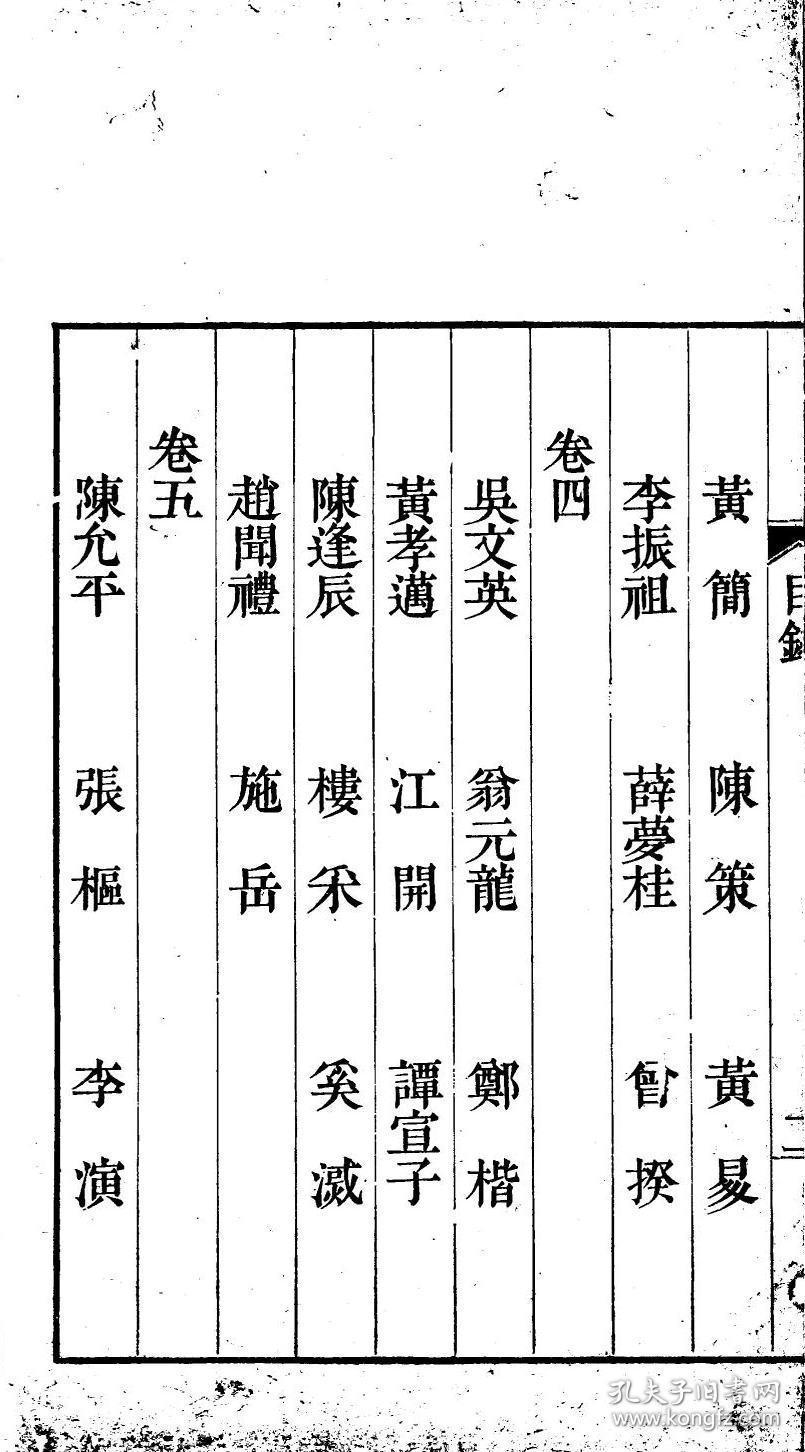 目錄
二
黃簡　陳策　黃昜
李振祖　薛夢桂　曾揆
卷四
吳文英　翁元龍　鄭楷
黃孝邁　江開　譚宣子
陳逢辰　樓采　奚㵄
趙聞禮　施岳
卷五
陳允平　張樞　李演
孔夫子旧书网
www.kongfz.com